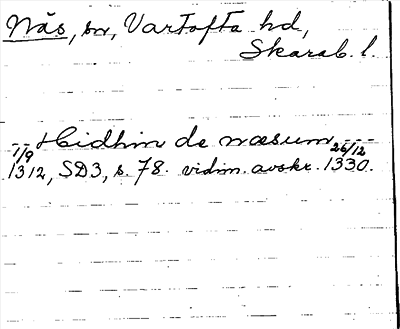 Näs, sn, Vartofta hd,
Skarab. l.
-- Hidhin de næsum ---
1/9 1312, SD3, s. 78. vidim. avskr. 26/12 1330.